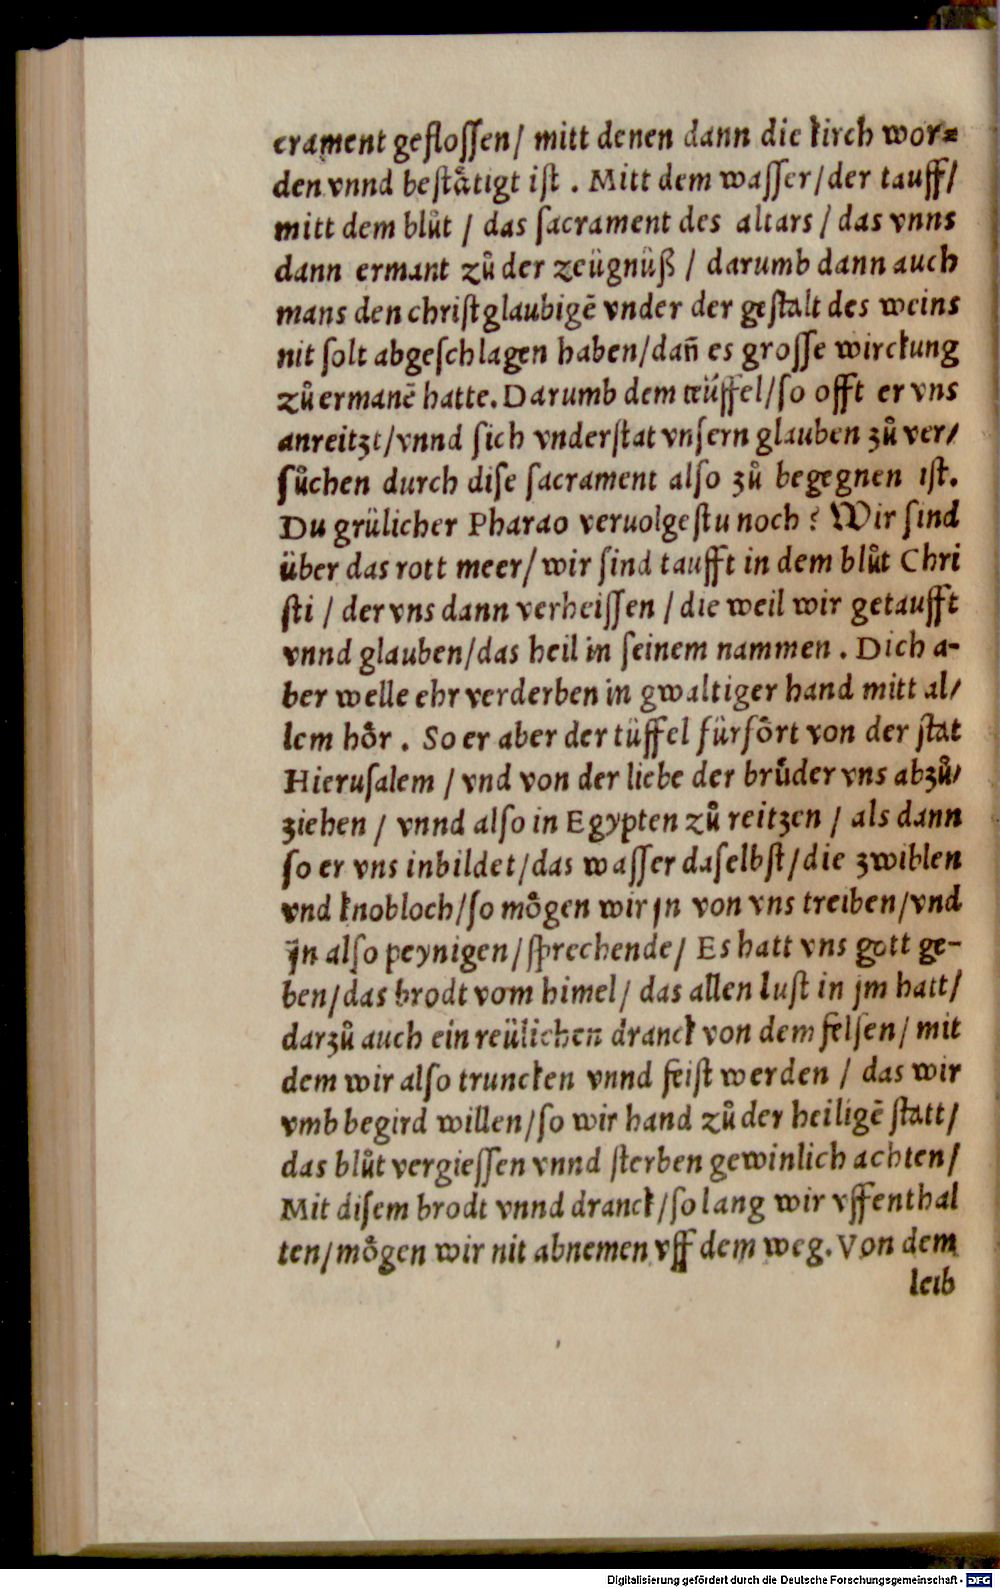 crament gefloſſen/ mitt denen dann die kirch wor⸗
den vnnd beſtåtigt iſt . Mitt dem waſſer/der tauff/
mitt dem blůt / das ſacrament des altars / das vnns
dann ermant zů der zeügnüß / darumb dann auch
mans den chriſtglaubigē vnder der geſtalt des weins
nit ſolt abgeſchlagen haben/dañ es groſſe wirckung
zů ermanē hatte. Darumb dem teüffel/ſo offt er vns
anreitzt/vnnd ſich vnderſtat vnſern glauben zů ver/
ſůchen durch diſe ſacrament alſo zů begegnen iſt.
Du grülicher Pharao veruolgeſtu noch ? Wir ſind
über das rott meer/ wir ſind taufft in dem blůt Chri
ſti / der vns dann verheiſſen / die weil wir getaufft
vnnd glauben/das heil in ſeinem nammen . Dich a-
ber welle ehr verderben in gwaltiger hand mitt al/
lem hôr . So er aber der tüffel fürfôrt von der ſtat
Hieruſalem / vnd von der liebe der brůder vns abzů/
ziehen / vnnd alſo in Egypten zů reitzen / als dann
ſo er vns inbildet/das waſſer daſelbſt/die zwiblen
vnd knobloch/ſo môgen wir jn von vns treiben/vnd
jn alſo peynigen/ſprechende/ Es hatt vns gott ge-
ben/das brodt vom himel/ das allen luſt in jm hatt/
darzů auch ein reülichen dranck von dem felſen/ mit
dem wir alſo truncken vnnd feiſt werden / das wir
vmb begird willen/ſo wir hand zů der heiligē ſtatt/
das blůt vergieſſen vnnd ſterben gewinlich achten/
Mit diſem brodt vnnd dranck/ſo lang wir vffenthal
ten/môgen wir nit abnemen vff dem weg. Von dem
leib
Digitalisierung gefördert durch die Deutsche Forschungsgemeinschaft - DFG